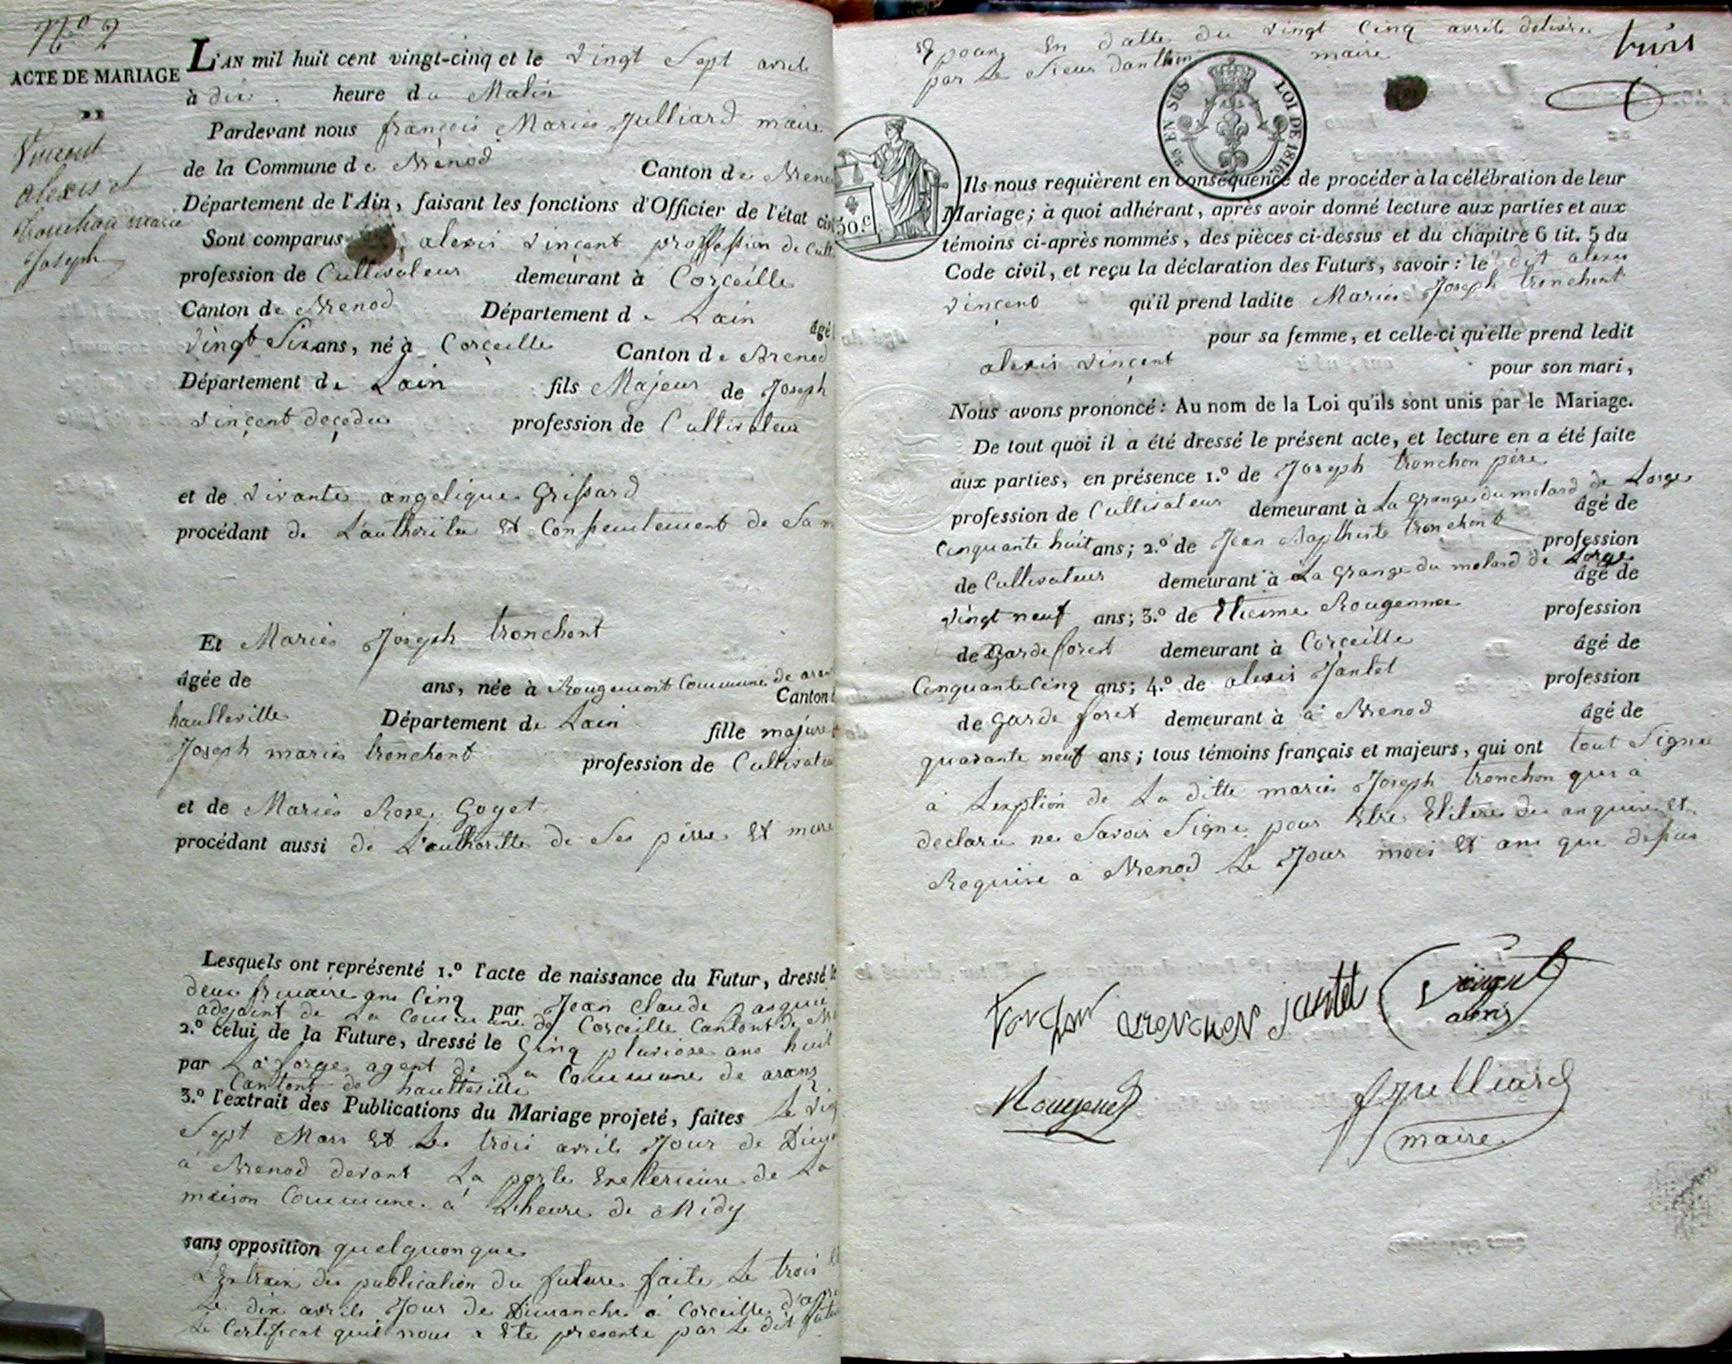 N.o 2
ACTE DE MARIAGE
Vincent
alexis et
tronchon marie
Joseph
L'AN mil huit cent vingt-cinq et le vingt Sept avril
à dix heure du Matin
Pardevant nous françois Maries Julliard maire
de la Commune de Brénod Canton de Bren
Département de l'Ain, faisant les fonctions d'Officier de l'état civ
Sont comparus alexis vinçent proffession de Cult
profession de Cultivateur demeurant à Corçeille
Canton de Brenod Département de Lain âgé
vingt Six ans, né à Corçeille Canton de Brenod
Département de Lain fils Majeur de Joseph
vinçent deçedu profession de Cultivateur
et de vivante angelique Grissard
procédant de L'authorite et Consentement de Sa m
Et Maries Joseph tronchont
âgée de ans, née à Rougemont Commune de aran
Canton d
haulleville Département de Lain fille majure
Joseph maries tronchont profession de Cultivateu
et de Maries Rose Goyet
procédant aussi de L'authoritte de Ses père et mere
Lesquels ont représenté 1.o l'acte de naissance du Futur, dressé le
deux frimaire ans Cinq par Jean Claude
adjoint de La Commune de Corceille Cantont de
2.o celui de la Future, dressé le Cinq pluviose ans huit
par La forge agent de La Commune de arans
Cantont de haulteville
3.o l'extrait des Publications du Mariage projeté, faites Le ving
Sept Mars et Le trois avril Jour de
à Brenod devant La porte Exterieure de La
maison Commune à L'heure de Midy
sans opposition quelquonque
L'Extrait de publication du future faite Le trois
Le dix avril Jour de Dimanche à Corceille d'apre
Le Certificat quil nous a Ete presenté par Le dit futur
Et pour En datte du vingt Cinq avril delivré
par Le Sieur maire
trois
EN SUS LOI DE 1816.
50.c
Ils nous requièrent en conséquence de procéder à la célébration de leur
Mariage; à quoi adhérant, après avoir donné lecture aux parties et aux
témoins ci-après nommés, des pièces ci-dessus et du chapitre 6 tit. 5 du
Code civil, et reçu la déclaration des Futurs, savoir: le dit alexis
vinçent qu'il prend ladite Maries Joseph tronchont
pour sa femme, et celle-ci qu'elle prend ledit
alexis vinçent pour son mari,
Nous avons prononcé: Au nom de la Loi qu'ils sont unis par le Mariage.
De tout quoi il a été dressé le présent acte, et lecture en a été faite
aux parties, en présence 1.o de Joseph tronchon père
profession de Cultivateur demeurant à La Grange du molard de Lorge âgé de
Cinquante huit ans; 2.o de Jean Bapthiste tronchont profession
de Cultivateur demeurant à La Grange du molard de Lorge âgé de
vingt neuf ans; 3.o de Etienne Rougemon profession
de Garde foret demeurant à Corçeille âgé de
Cinquante Cinq ans; 4.o de alexis Jantet profession
de Garde foret demeurant à à Brenod âgé de
quarante neuf ans; tous témoins français et majeurs, qui ont tout Signé
à Lexption de La ditte maries Joseph tronchon qui à
declaré ne Savoir Signe pour Etre de anquire et
Requise à Brenod Le Jour mois et ans que dessus
tronchon jantet vinçent
alexis
Julliard
maire